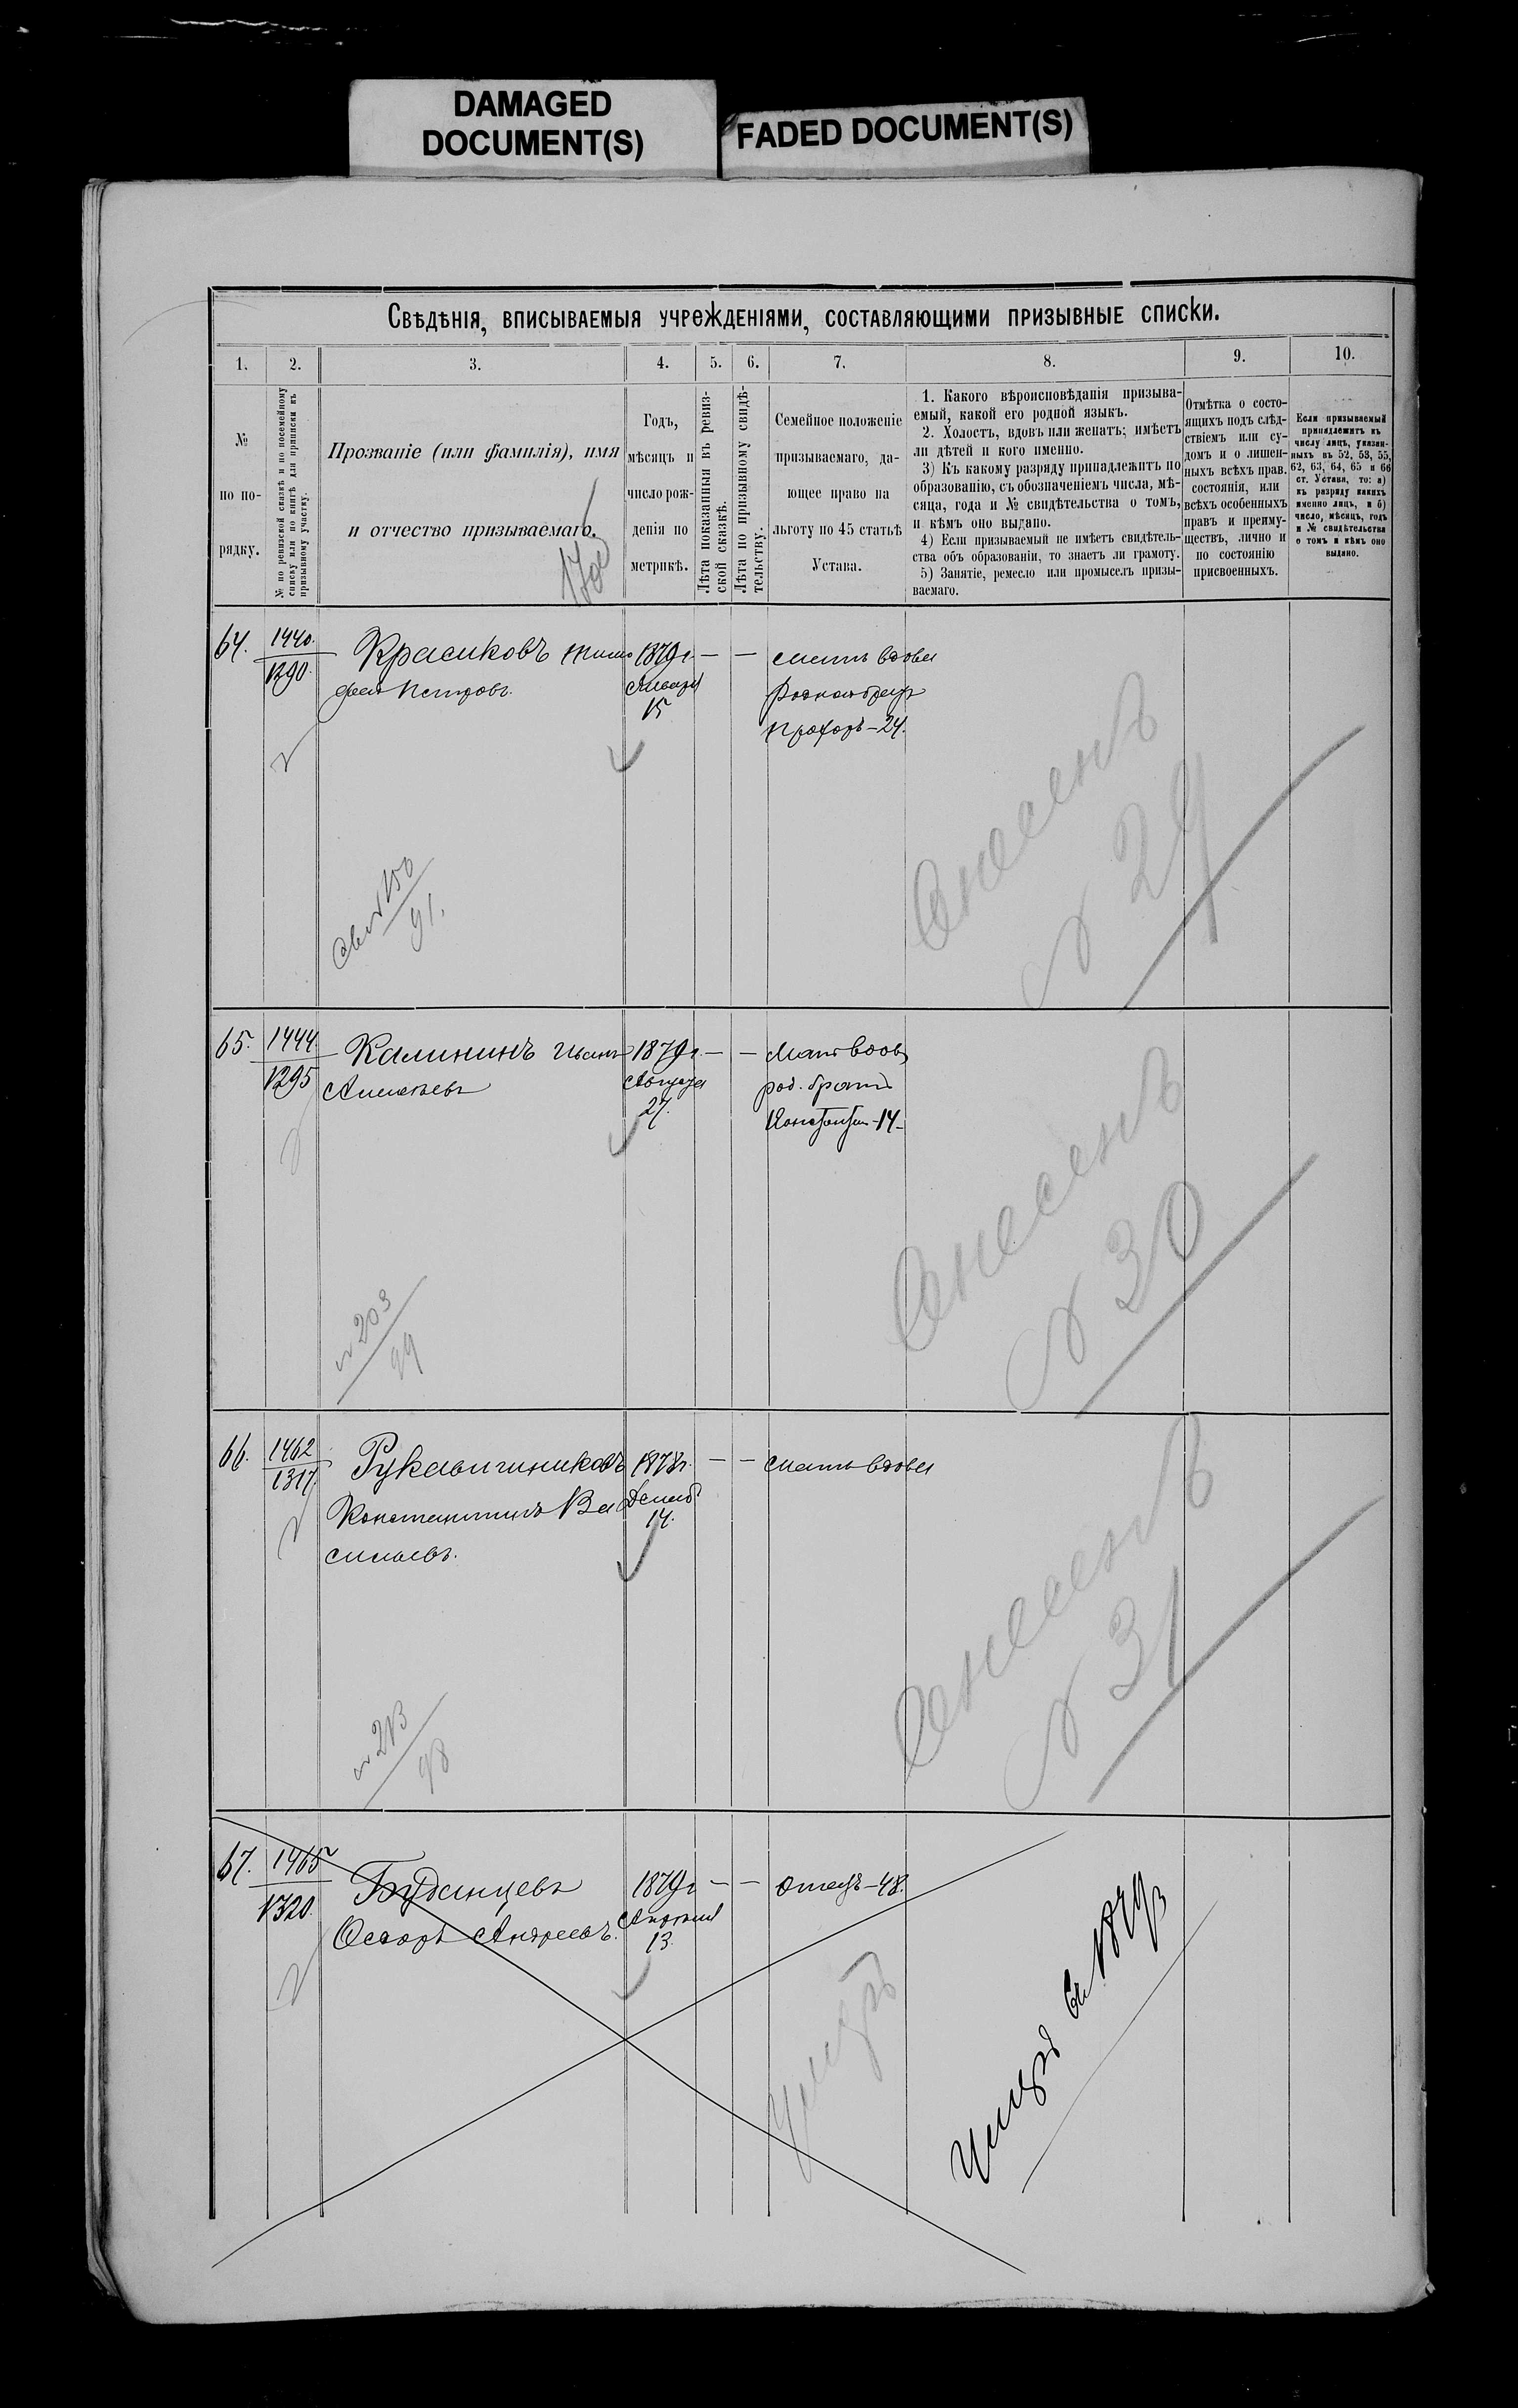 DAMAGED
DOCUMENT(S)
FADED DOCUMENT(S)
Свѣдѣнія, вписываемыя учрежденіями, составляющими призывные списки.
1.
2.
3.
4.
5.
6.
7.
8.
9.
10.
№
по по-
рядку.
№ по ревизской сказкѣ и по посемейному
списку или по книгѣ для приписки къ
призывному участку.
Прозваніе (или фамилія), имя
и отчество призываемаго.
Годъ,
мѣсяцъ и
число рож-
денія по
метрикѣ.
Лѣта показанныя въ ревиз-
ской сказкѣ.
Лѣта по призывному свидѣ-
тельству.
Семейное положеніе
призываемаго, да-
ющее право на
льготу по 45 статьѣ
Устава.
1. Какого вѣроисповѣданія призыва-
емый, какой его родной языкъ.
2. Холостъ, вдовъ или женатъ; имѣетъ
ли дѣтей и кого именно.
3) Къ какому разряду принадлежитъ по
образованію, съ обозначеніемъ числа, мѣ-
сяца, года и № свидѣтельства о томъ,
и кѣмъ оно выдано.
4) Если призываемый не имѣетъ свидѣтель-
ства объ образованіи, то знаетъ ли грамоту.
5) Занятіе, ремесло или промыселъ призы-
ваемаго.
Отмѣтка о состо-
ящихъ подъ слѣд-
ствіемъ или су-
домъ и о лишен-
ныхъ всѣхъ прав.
состоянія, или
всѣхъ особенныхъ
правъ и преиму-
ществъ, лично и
по состоянію
присвоенныхъ.
Если призываемый
принадлежитъ къ
числу лицъ, указан-
ныхъ въ 52, 53, 55,
62, 63, 64, 65 и 66
ст. Устава, то: а)
къ разряду какихъ
именно лицъ, и б)
число, мѣсяцъ, годъ
и № свидѣтельства
о томъ и кѣмъ оно
выдано.
64.
1440.
1290.
Красиковъ Тимо
фей Петровъ.
1879 г.
Января
15
—
—
Мать вдова
Родной братъ
Прохоръ – 24.
150
91.
Внесенъ
№ 29
65.
1444.
1295
Калининъ Иванъ
Алексѣевъ
1879 г.
Августа
27.
—
—
Мать вдова
род. братъ
Константин – 14 –
№ 203
99
Внесенъ
№ 30
66.
1462
1317.
Рукавишниковъ
Константинъ Ва
сильевъ.
1878 г.
Декаб.
14.
—
—
Мать вдова
№ 213
98
Внесенъ
№ 31
67.
1465
1320.
Буданцевъ
Ѳедоръ Андреевъ.
1879 г.
Апрѣля
13.
—
—
Отецъ – 48.
Умеръ
Умеръ въ 1879 г